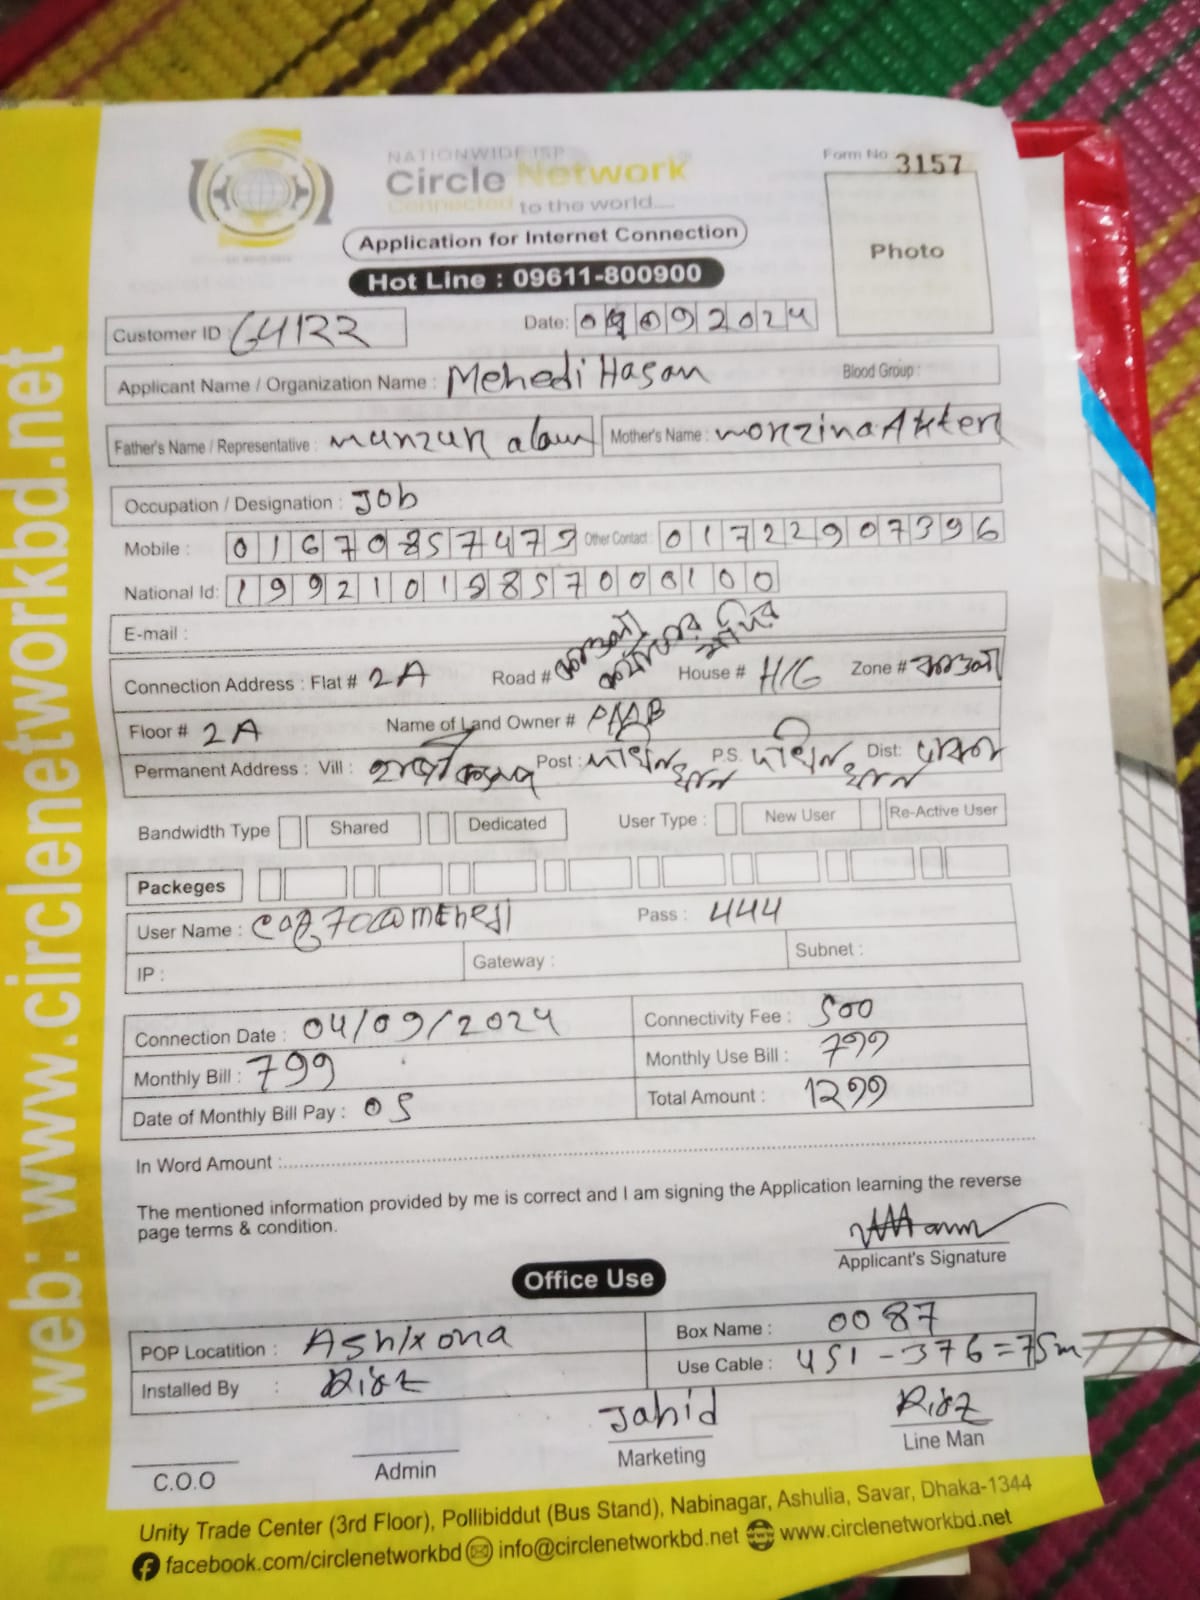 web: www.circlenetworkbd.net
NATIONWIDE ISP
Circle Network
Connected to the world....
Form No 3157
Application for Internet Connection
Hot Line : 09611-800900
Photo
Customer ID : 64122 Date: 04092024
Applicant Name / Organization Name : Mehedi Hasan Blood Group :
Father's Name / Representative : Munzur alam Mother's Name : Monzina Akter
Occupation / Designation : Job
Mobile : 01670857479 Other Contact : 01722907396
National Id: 19921018857000100
E-mail :
Connection Address : Flat # 2A Road # House # H/G Zone #
Floor # 2A Name of Land Owner #
Permanent Address : Vill : Post : P.S. Dist:
Bandwidth Type Shared Dedicated User Type : New User Re-Active User
Packeges
User Name : Pass : 444
IP : Gateway : Subnet :
Connection Date : 04/09/2024 Connectivity Fee : 500
Monthly Bill : 799 Monthly Use Bill : 799
Date of Monthly Bill Pay : 05 Total Amount : 1299
In Word Amount :
The mentioned information provided by me is correct and I am signing the Application learning the reverse
page terms & condition.
Applicant's Signature
Office Use
POP Locatition : Ashixona Box Name : 0087
Installed By : Use Cable : 451-376=75m
Jahid
C.O.O Admin Marketing Line Man
Unity Trade Center (3rd Floor), Pollibiddut (Bus Stand), Nabinagar, Ashulia, Savar, Dhaka-1344
facebook.com/circlenetworkbd info@circlenetworkbd.net www.circlenetworkbd.net